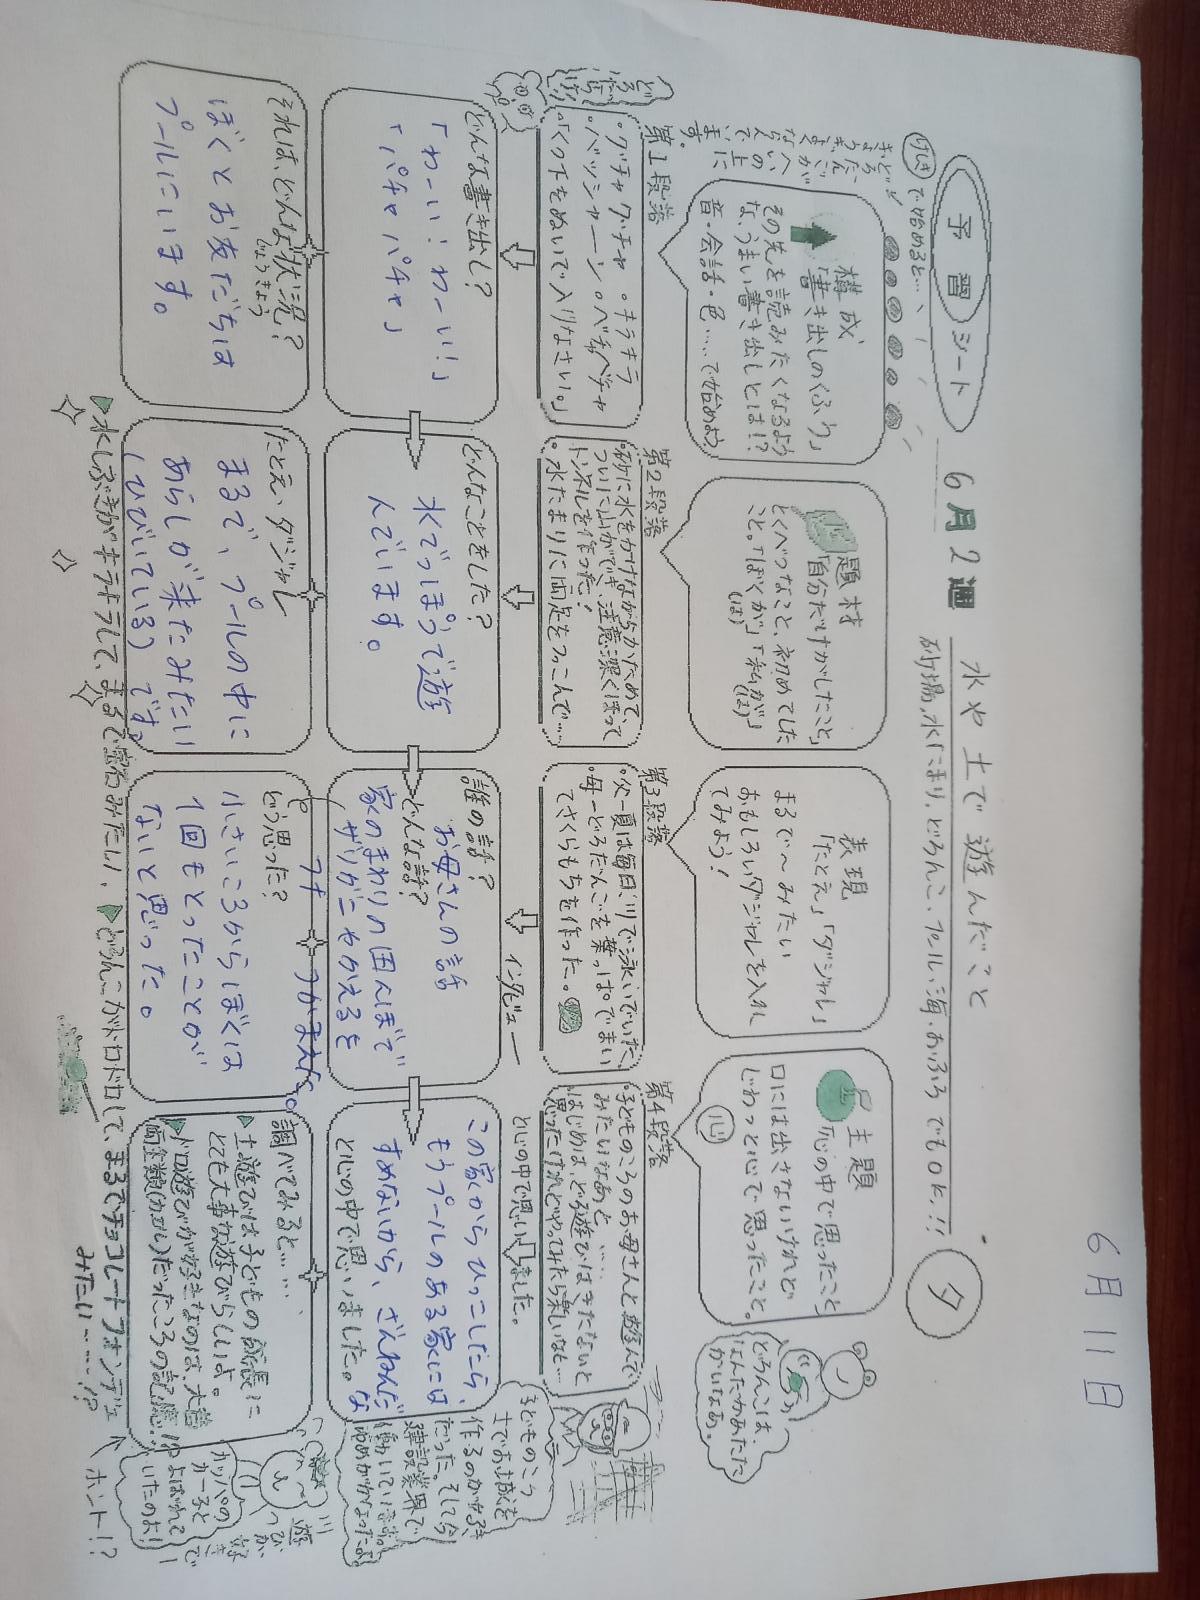 6月11日
予習シート 6月2週 水や土で遊んだこと 夕
砂場、水たまり、どろんこ、プール、海、おふろでもOK!!
けしきで始めると…、
構成
「書き出しのくふう」
その先を読みたくなるよう
な、うまい書き出しとは!?
音・会話・色……で始めよう
題材
「自分だけがしたこと」
とくべつなこと、初めてした
こと。「ぼくが」「私が」
(は) (は)
表現
「たとえ」「ダジャレ」
まるで〜みたい
おもしろいダジャレを入れ
てみよう!
主題
「心の中で思ったこと」
口には出さないけれど
じわっと心で思ったこと。
心
どろんこは
あたたかい
なあ。
第1段落
・グチャグチャ・キラキラ
・バッシャーン・ベチャベチャ
・「くつ下をぬいで入りなさい。」
第2段落
・砂に水をかけながらかためて、
ついに山ができ、注意深くほって
トンネルを作った!
・水たまりに両足をつっこんで…
第3段落
・父―夏は毎日、川で泳いでいた。
・母―どろだんごを葉っぱでまい
てさくらもちを作った。
第4段落
・子どものころのお母さんと遊んで
みたいなあと……
はじめは、どろ遊びはきたないと
思ったけれどやってみたら楽しいなと…
と心の中で思いました。
インタビュー
どんな書き出し?
「わーい!わーい!」
「パチャパチャ」
どんなことをした?
水でっぽうで遊
んでいます。
誰の話?
どんな話?
お母さんの話
家のまわりの田んぼで
ザリガニやかえるを
この家からひっこしたら、
もうプールのある家には
すめないから、ざんねんだな
と心の中で思いました。
それは、どんな状況?
じょうきょう
ぼくとお友だちは
プールにいます。
たとえ、ダジャレ
まるで、プールの中に
あらしが来たみたい
(ひびいている)です。
どう思った?
小さいころからぼくは
1回もとったことが
ないと思った。
調べてみると……
土遊びは子どもの成長に
とても大事な遊びらしいよ。
ドロ遊びが好きなのは、大昔
両生類(カエル)だったころの記憶!?
子どものころ
土でお城を
作るのが好き
だった。そして今
建設業界で
働いている
水しぶきがキラキラして、まるで宝石みたい!
どろんこがドロドロして、まるでチョコレートフォンデュ
みたい……!?
ホント!?